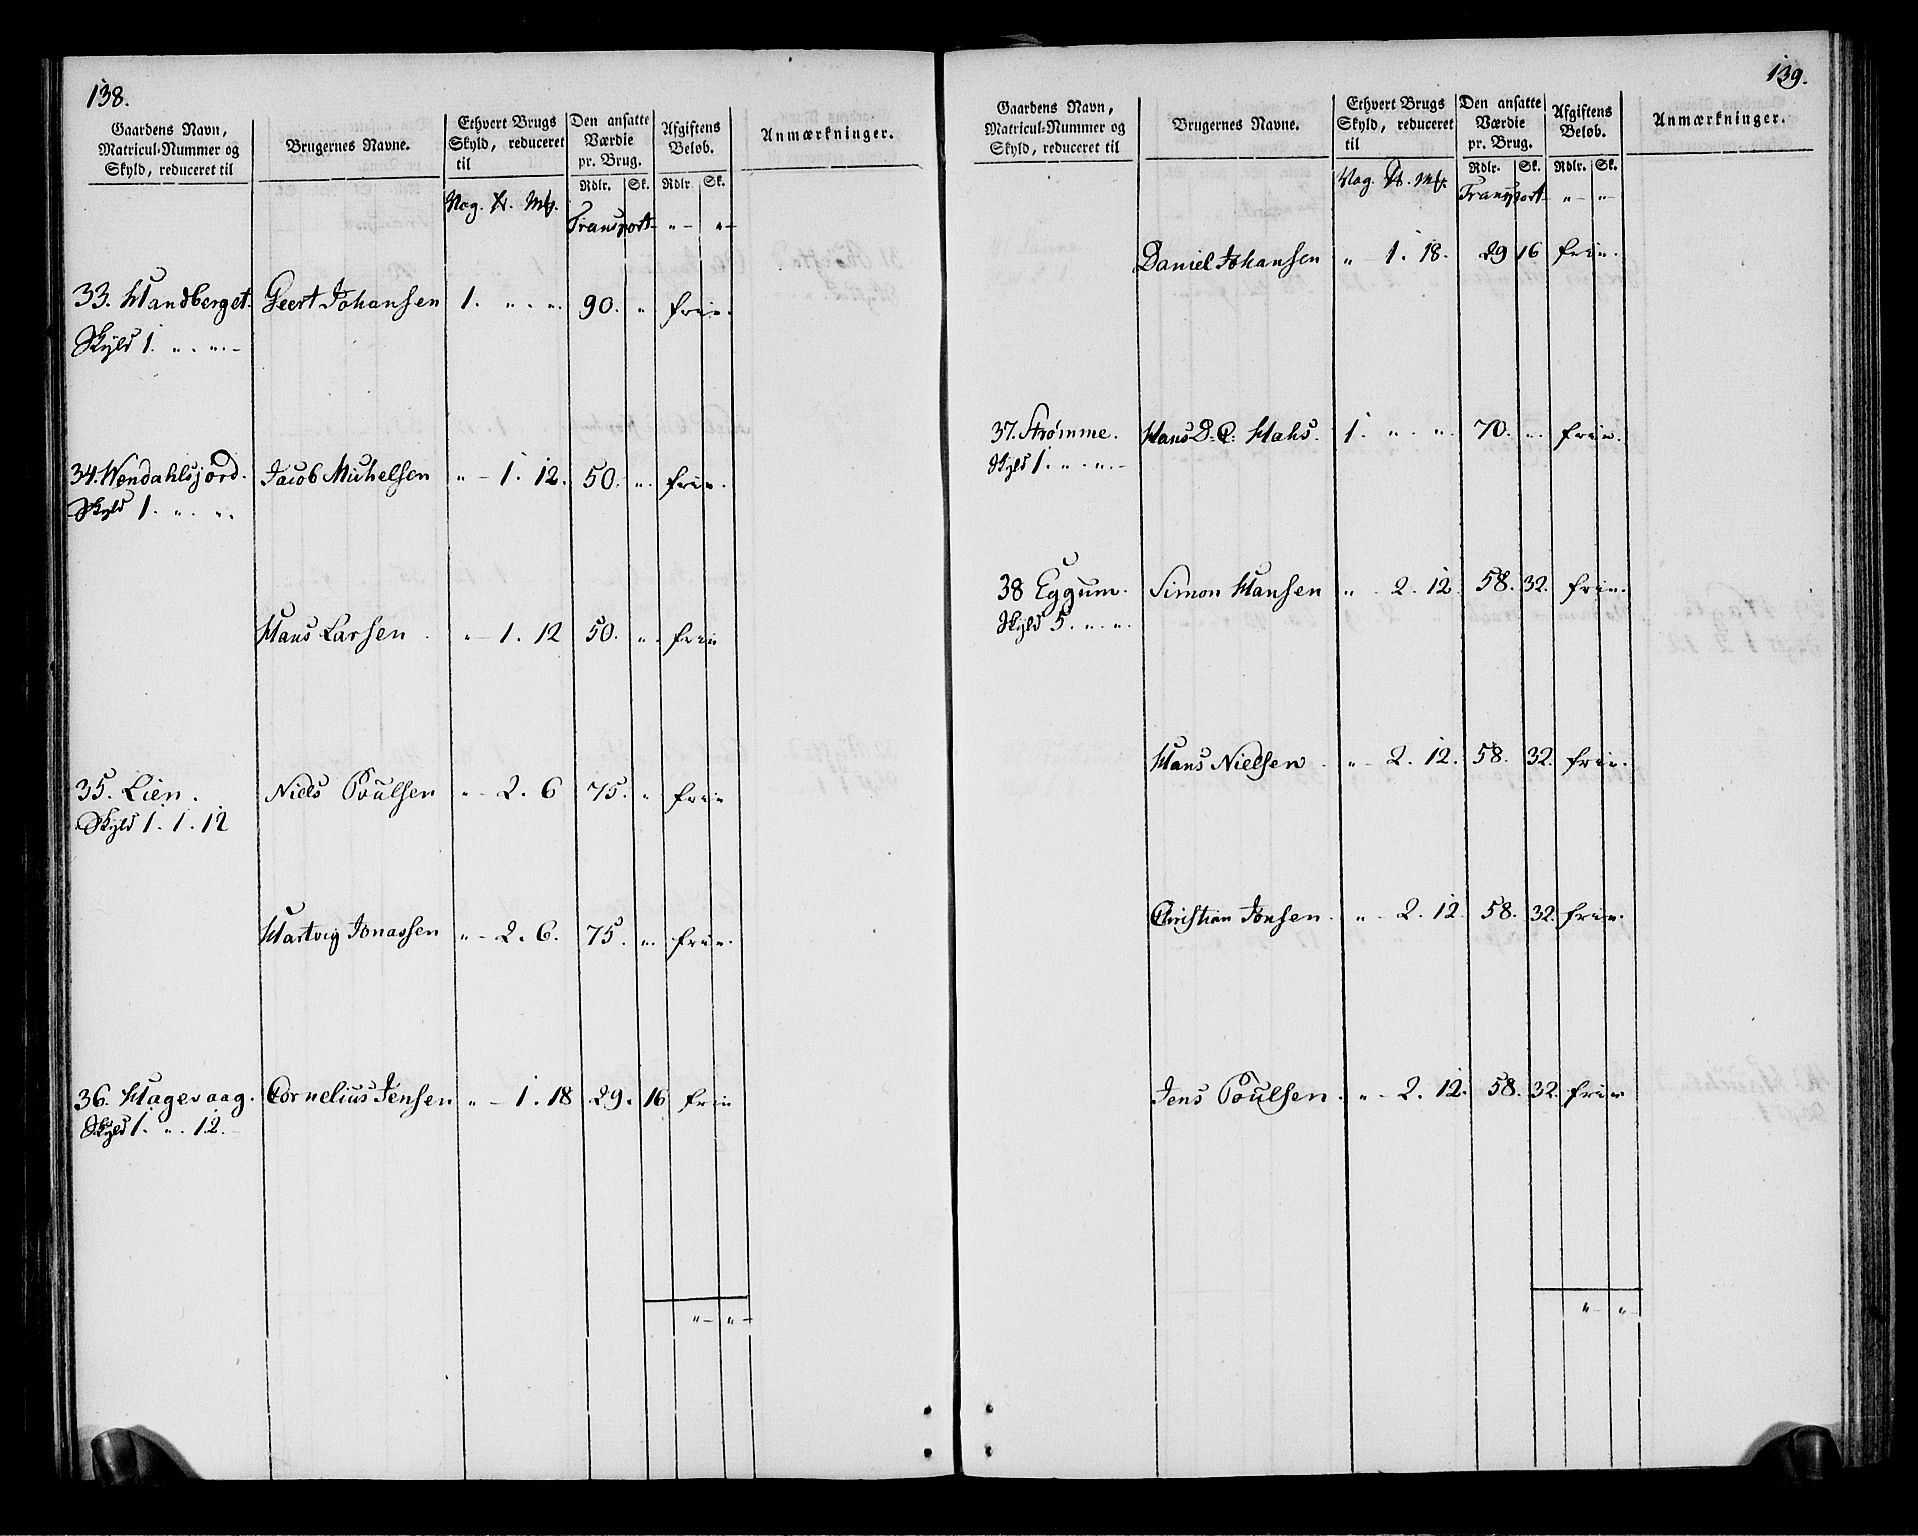 138.
Gaardens Navn, Matricul-Nummer og Skyld, reduceret til
Brugernes Navne.
Ethvert Brugs Skyld, reduceret til
Den ansatte Værdie pr. Brug.
Afgiftens Beløb.
Anmærkninger.
Rdlr. Sk. Rdlr Sk.
Vog. ℔. Mk.
Transport „ – „ –
33. Handberget. Geert Johansen 1. „ . „ . 90. „ frie.
Skyld 1. „ . „ . –
34. Wendahlsjord. Jacob Michelsen „ – 1. 12. 50. „ . frie.
Skyld 1. „ . „ .
Hans Larsen . „ – 1. 12 50. „ . frie
35. Lien. Niels Poulsen „ – 2. 6 75. „ frie
Skyld 1. 1. 12
Hartvig Jonassen „ – 2. 6. 75. „ . frie.
36. Hagevaag. Cornelius Jensen „ – 1. 18 29. 16 frie
Skyld 1. „ . 12.
„ – „ –
139.
Gaardens Navn, Matricul-Nummer og Skyld, reduceret til
Brugernes Navne.
Ethvert Brugs Skyld, reduceret til
Den ansatte Værdie pr. Brug.
Afgiftens Beløb.
Anmærkninger.
Rdlr. Sk. Rdlr. Sk.
Vog. ℔. Mk.
Transport „ – „ –
Daniel Johansen „ – 1. 18. 29 16 frie.
37. Strømme. Hans D. C. Hals. 1. „ . „ . 70. „ . frie.
Skyld 1. „ . „ . –
38 Eggum. Simon Hansen „ – 2. 12 58. 32. frie.
Skyld 5. „ . „ .
Hans Nielsen . „ – 2. 12. 58. 32. frie.
Christian Jonsen. „ – 2. 12. 58. 32. frie.
Jens Poulsen. „ – 2. 12. 58. 32. frie
„ – „ –